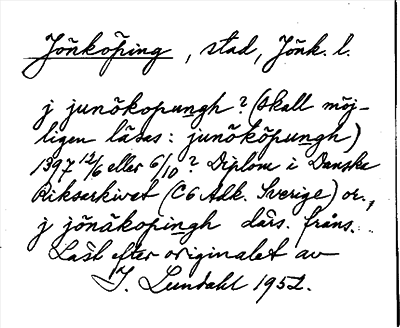 Jönköping, stad, Jönk. l.
j junökopungh? (skall möj-
ligen läsas: junököpungh)
1397 12/6 eller 6/10? Diplom i Danske
Riksarkivet (C6 Adk. Sverige) or.,
j jönäkopingh därs. från s.
Läst efter originalet av
I. Lundahl 1952.